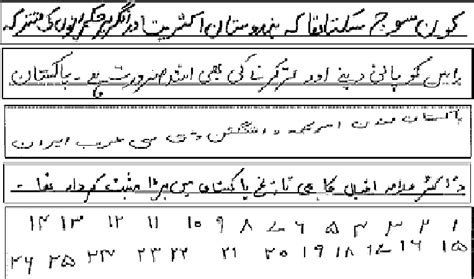 کون سوچ سکتا تھا کہ ہندوستان اکثریت اور انگریز حکمرانوں کی مشترکہ
پراس کو پانی دینے اور تر کرنے کی بھی اشد ضرورت ہے ۔ پاکستان
پاکستان لندن امریکہ واشنگٹن ڈی سی عرب ایران
ڈاکٹر علامہ اقبال کا بھی تاریخ پاکستان میں بڑا مثبت کردار تھا ۔
۱ ۲ ۳ ۴ ۵ ۶ ۷ ۸ ۹ ۱۰ ۱۱ ۱۲ ۱۳ ۱۴
۱۵ ۱۶ ۱۷ ۱۸ ۱۹ ۲۰ ۲۱ ۲۲ ۲۳ ۲۴ ۲۵ ۲۶